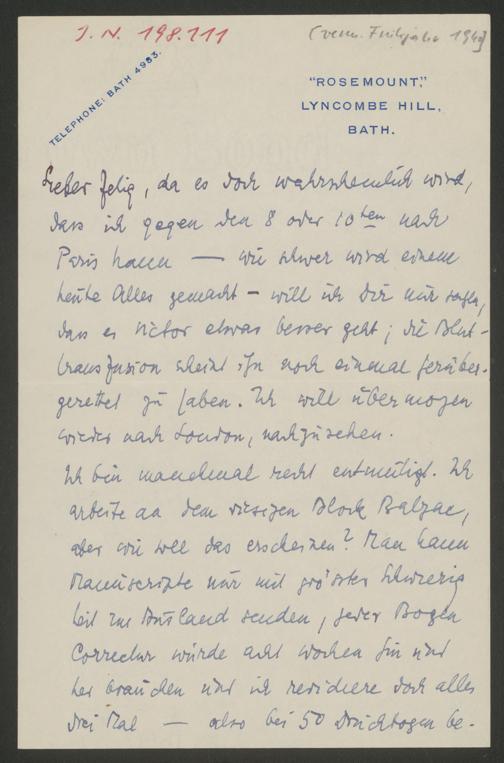 I. N. 198.111
(verm. Frühjahr 1940)
TELEPHONE: BATH 4963.
"ROSEMOUNT,"
LYNCOMBE HILL,
BATH.
Lieber Felix, da es doch wahrscheinlich wird,
dass ich gegen den 8 oder 10ten nach
Paris kann — wie schwer wird einem
heute Alles gemacht – will ich Dir nur sagen,
dass es Victor etwas besser geht; die Blut-
transfusion scheint ihn noch einmal herüber-
gerettet zu haben. Ich will übermorgen
wieder nach London, nachzusehen.
Ich bin manchmal recht entmutigt. Ich
arbeite an dem riesigen Block Balzac,
aber wie soll das erscheinen? Man kann
Manuscripte nur mit grösster Schwierig
keit ins Ausland senden, jeder Bogen
Correctur würde acht Wochen hin und
her brauchen und ich revidiere doch alles
drei Mal — also bei 50 Druckbogen be-